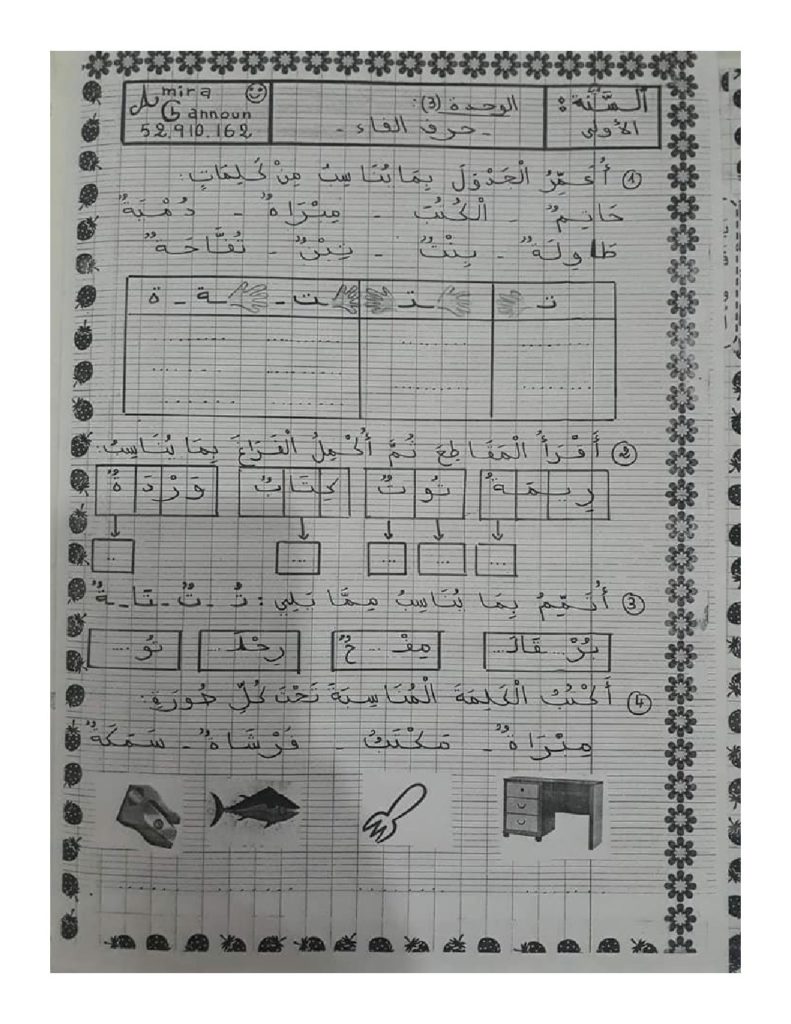 السَّنَة: الأولى
الوحدة (3):
- حرف التاء -
Amira Gannoun
52.910.162
① أُعَمِّرُ الْجَدْوَلَ بِمَا يُنَاسِبُ مِنْ كَلِمَاتٍ:
خَاتِمٌ - الْكُتُبَ - مِبْرَاةٌ - دُمْيَةٌ
طَاوِلَةٌ - بِنْتٌ - تِبْنٌ - تُفَّاحَةٌ
تـ ـتـ ـت - ـة - ة
② أَقْرَأُ الْمَقَاطِعَ ثُمَّ أُكْمِلُ الْفَرَاغَ بِمَا يُنَاسِبُ:
رِيـمَـةُ تُوتٌ كِتَابٌ وَرْدَةٌ
... ... ... ... ...
③ أُتَمِّمُ بِمَا يُنَاسِبُ مِمَّا يَلِي: تُ - تٌ - تَا - ةٌ
بُرْ...قَالـ... مِفْ...حٌ رِحْلَـ... تُو...
④ أَكْتُبُ الْكَلِمَةَ الْمُنَاسِبَةَ تَحْتَ كُلِّ صُورَةٍ:
مِبْرَاةٌ - مَكْتَبٌ - فَرْشَاةٌ - سَمَكَةٌ